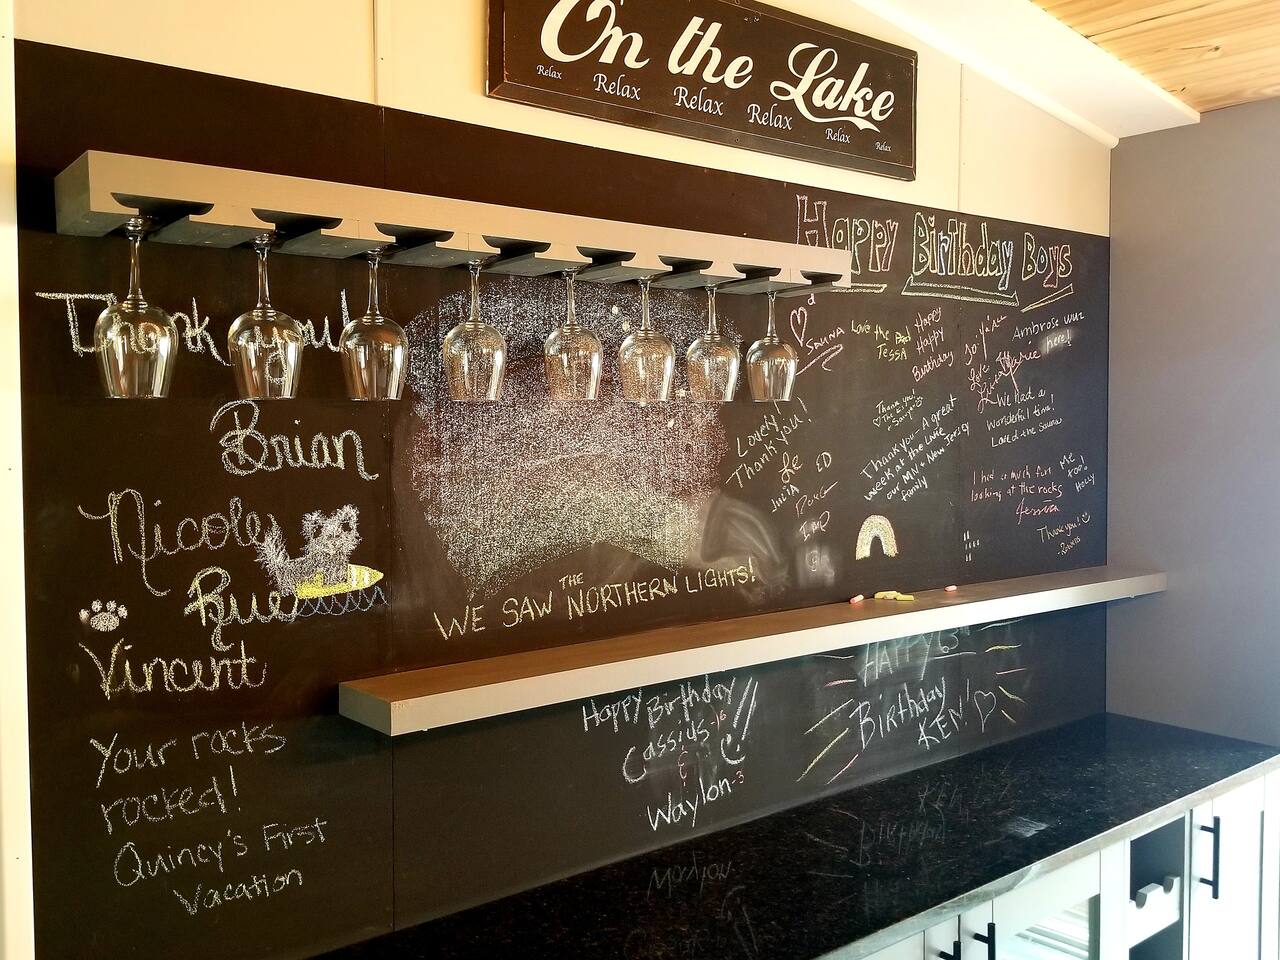 On the Lake
Relax Relax Relax Relax Relax Relax
Happy Birthday Boys
Thank you!
Brian
Nicole
Rue
Vincent
Your rocks
rocked!
Quincy's First
Vacation
WE SAW THE NORTHERN LIGHTS!
SAUNA
Lovely!
Thank you!
Le
LuciA
ED
DOUG
Love the Bed
TESSA
Happy
Happy
Birthday
Thank you!
Thank you - A great
week at the Lake
our MN + New Jersey
family
Love
Ambrose wuz
here!
We had a
wonderful time!
Loved the Sauna
I had so much fun
looking at the rocks
Jessica
Me
too!
HOLLY
Thank you!
Happy Birthday
Cassius-16
&
Waylon-3
HAPPY 63rd
Birthday
KEN!